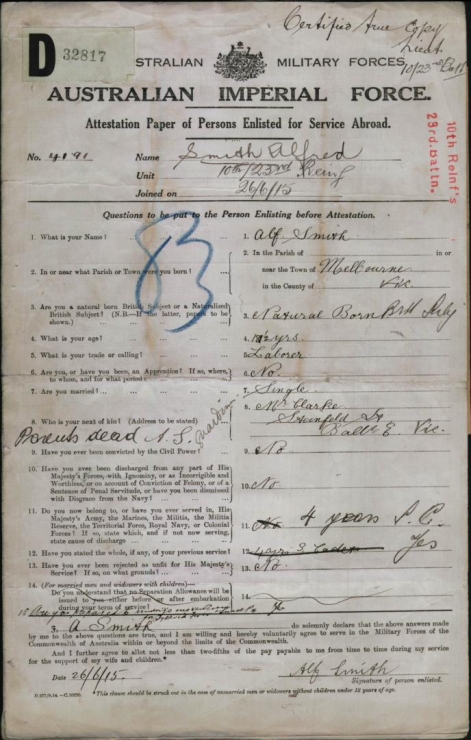 Certified true Copy
Lieut
10/23rd Batt
D 32817
AUSTRALIAN MILITARY FORCES
AUSTRALIAN IMPERIAL FORCE.
Attestation Paper of Persons Enlisted for Service Abroad.
10th Reinf's
23rd. Battn.
No. 4191 Name Smith Alfred
Unit 10th/23rd Reinf
Joined on 26/6/15
Questions to be put to the Person Enlisting before Attestation.
83
1. What is your Name? 1. Alf Smith
2. In or near what Parish or Town were you born? 2. In the Parish of in or
near the Town of Melbourne
in the County of Vic
3. Are you a natural born British Subject or a Naturalized
British Subject? (N.B.—If the latter, papers to be
shown.) 3. Natural Born Brit Subj
4. What is your age? 4. yrs.
5. What is your trade or calling? 5. Laborer
6. Are you, or have you been, an Apprentice? If so, where,
to whom, and for what period? 6. No.
7. Are you married? 7. Single
8. Who is your next of kin? (Address to be stated) 8. Mr Clarke
St
E. Vic.
Parents dead Guardian
9. Have you ever been convicted by the Civil Power? 9. No
10. Have you ever been discharged from any part of His
Majesty's Forces, with Ignominy, or as Incorrigible and
Worthless, or on account of Conviction of Felony, or of a
Sentence of Penal Servitude, or have you been dismissed
with Disgrace from the Navy? 10. No
11. Do you now belong to, or have you ever served in, His
Majesty's Army, the Marines, the Militia, the Militia
Reserve, the Territorial Force, Royal Navy, or Colonial
Forces? If so, state which, and if not now serving,
state cause of discharge 11. No 4 years S. C.
12. Have you stated the whole, if any, of your previous service? 12. 4 yrs S Cadets Yes
13. Have you ever been rejected as unfit for His Majesty's
Service? If so, on what grounds? 13. No
14. (For married men and widowers with children)—
Do you understand that no Separation Allowance will be
issued to you either before or after embarkation
during your term of service? 14.
15 Are you prepared to undergo
Yes
I, A Smith do solemnly declare that the above answers made
by me to the above questions are true, and I am willing and hereby voluntarily agree to serve in the Military Forces of the
Commonwealth of Australia within or beyond the limits of the Commonwealth.
And I further agree to allot not less than two-fifths of the pay payable to me from time to time during my service
for the support of my wife and children.*
Date 26/6/15. Alf Smith
Signature of person enlisted.
*This clause should be struck out in the case of unmarried men or widowers without children under 18 years of age.